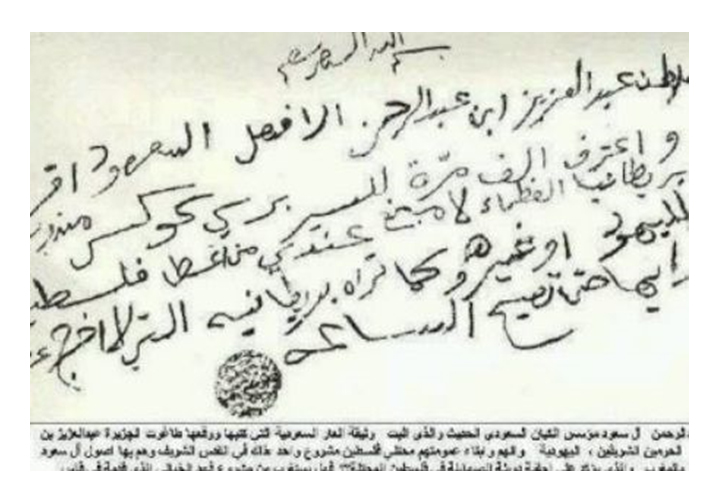 بسم الله الرحمن الرحيم
السلطان عبد العزيز ابن عبد الرحمن الافصل السعود اقر
و اعترف الف مرة للسير برسي كوكس مندوب
بريطانيا العظماء لا مانع عندي من اعطا فلسطين
لليهود او غيرهم وكما تراه بريطانيه التي لا اخرج عن
رايها حتى تصيح الساعه
الرحمن آل سعود مؤسس الكيان السعودي الحديث والذي اثبت وثيقة العار السعودية التي كتبها ووقعها طاغوت الجزيرة عبدالعزيز بن
الحرمين الشريفين ، اليهودية والهم وابناء عمومتهم محتلي فلسطين مشروع واحد هناك في القدس الشريف وهم بها اصول آل سعود